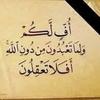 أُفٍّ لَّكُمْ
وَلِمَا تَعْبُدُونَ مِن دُونِ اللَّهِ
أَفَلَا تَعْقِلُونَ